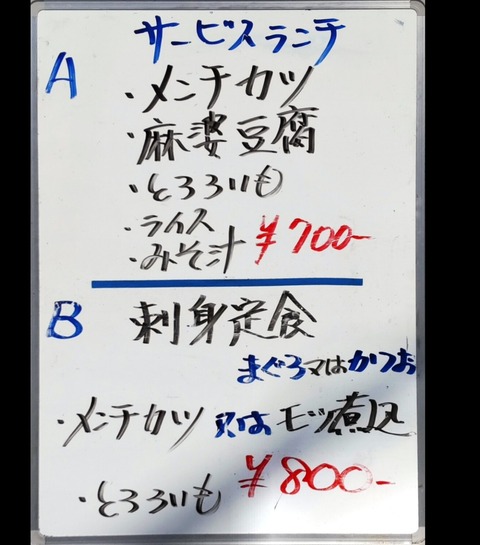 サービスランチ
A
・メンチカツ
・麻婆豆腐
・とろろいも
・ライス
・みそ汁 ¥700-
B 刺身定食
まぐろ又はかつお
・メンチカツ 又は モツ煮込
・とろろいも ¥800-